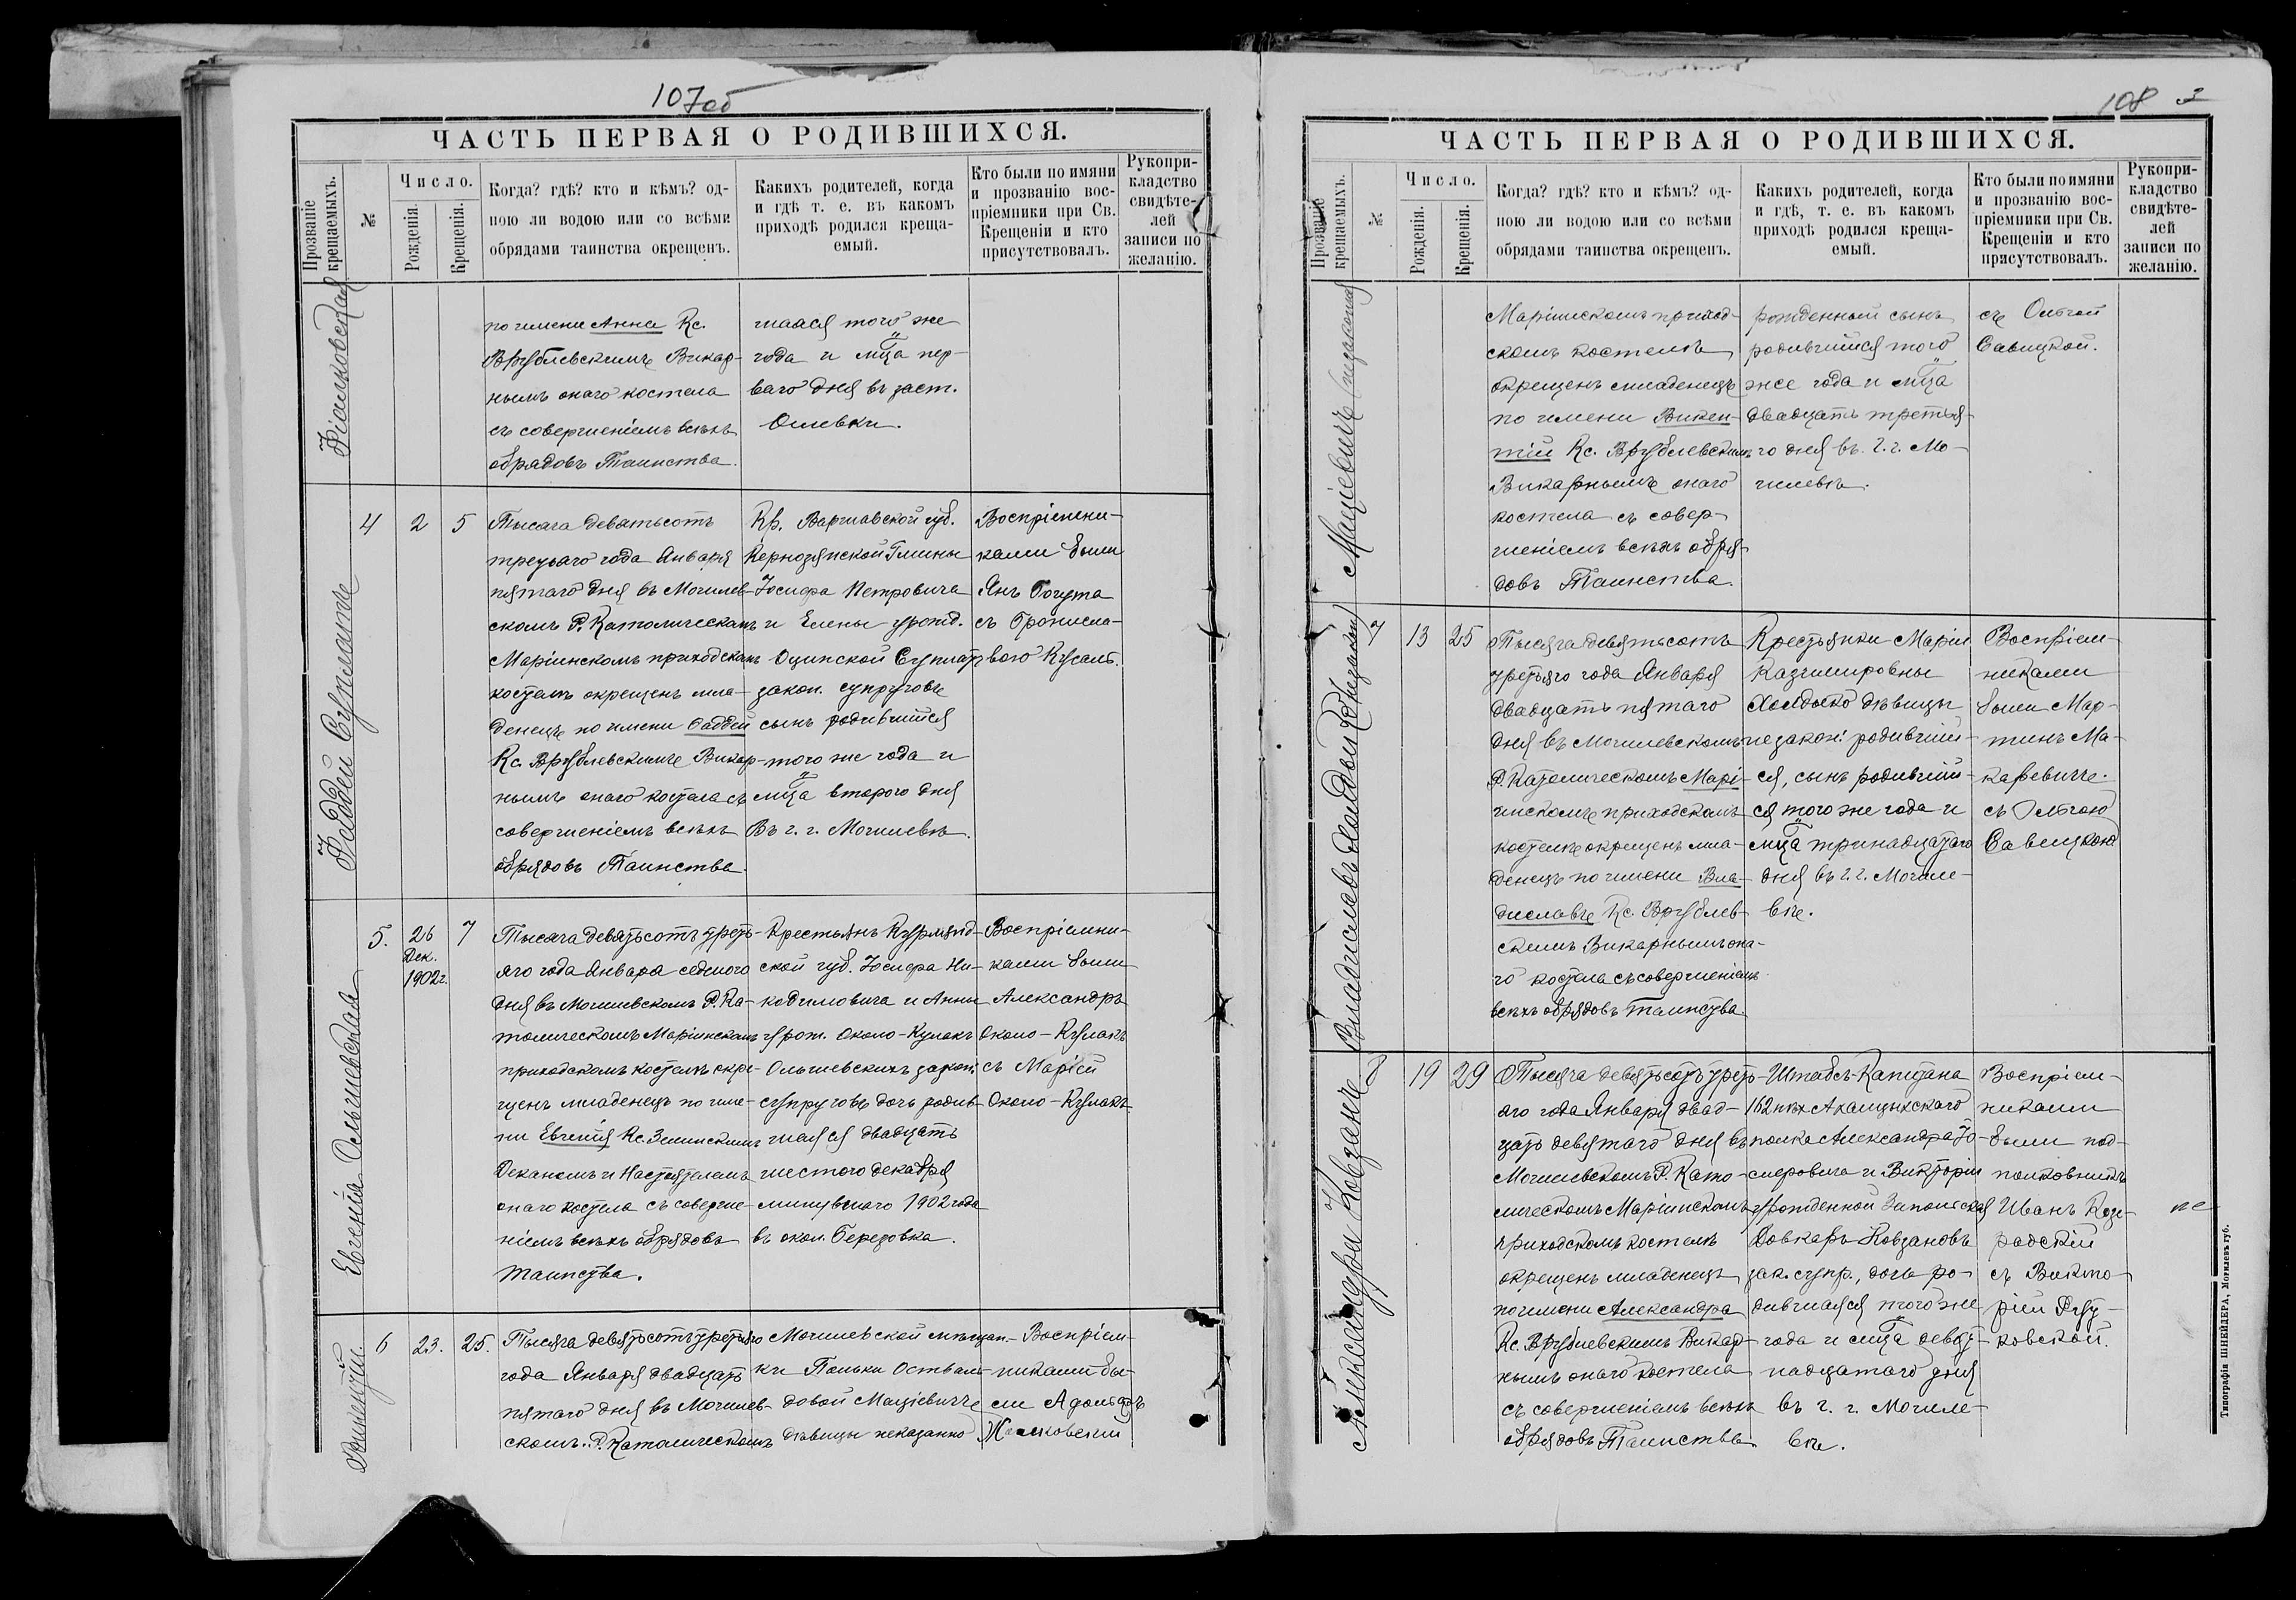 107об
ЧАСТЬ ПЕРВАЯ О РОДИВШИХСЯ.
Прозваніе
крещаемыхъ.
№
Число.
Рожденія.
Крещенія.
Когда? гдѣ? кто и кѣмъ? од-
ною ли водою или со всѣми
обрядами таинства окрещенъ.
Какихъ родителей, когда
и гдѣ т. е. въ какомъ
приходѣ родился креща-
емый.
Кто были по имяни
и прозванію вос-
пріемники при Св.
Крещеніи и кто
присутствовалъ.
Рукопри-
кладство
свидѣте-
лей
записи по
желанію.
по имени Анна Кс.
Врублевскимъ Викар-
нымъ онаго костела
съ совершеніемъ всѣхъ
обрядовъ Таинства.
шаяся того же
года и мца пер-
ваго дня въ заст.
Ѳаддей Суплатъ
4
2
5
Тысяча девятьсотъ
третьяго года Января
пятаго дня въ Могилев-
скомъ Р. Католическомъ
Маріинскомъ приходскомъ
костелѣ окрещенъ мла-
денецъ по имени Ѳаддей
Кс. Врублевскимъ Викар-
нымъ онаго костела съ
совершеніемъ всѣхъ
обрядовъ Таинства.
Кр. Варшавской губ.
Гмины
Іосифа Петровича
и Елены урожд.
закон. супруговъ
сынъ родившійся
того же года и
мца второго дня
въ г. г. Могилевѣ.
Воспріемни-
ками были
Янъ Богута
съ Бронисла-
вою
Евгенія Ольшевская
5.
26
Дек.
1902г.
7
Тысяча девятьсотъ треть-
яго года Января седьмого
дня въ Могилевскомъ Р. Ка-
толическомъ Маріинскомъ
приходскомъ костелѣ окре-
щенъ младенецъ по име-
ни Евгенія Кс. Зелинскимъ
Деканомъ и Настоятелемъ
онаго костела съ соверше-
ніемъ всѣхъ обрядовъ
таинства.
Крестьянъ Курлянд-
ской губ. Іосифа Ни-
кодимовича и Анны
урож. Около-Кулакъ
Ольшевскихъ закон.
супруговъ дочь родив-
шаяся двадцать
шестого декабря
минувшаго 1902 года
въ окол. Березовка.
Воспріемни-
ками были
Александръ
Около-Кулакъ
съ Маріей
Около-Кулакъ
Викентій
6
23.
25.
Тысяча девятьсотъ третьяго
года Января двадцать
пятаго дня въ Могилев-
скомъ Р. Католическомъ
Могилевской мѣщан-
ки
довой Маціевичъ
дѣвицы незаконно
Воспріем-
никами бы-
ли Адольфъ
108 3
ЧАСТЬ ПЕРВАЯ О РОДИВШИХСЯ.
Прозваніе
крещаемыхъ.
№
Число.
Рожденія.
Крещенія.
Когда? гдѣ? кто и кѣмъ? од-
ною ли водою или со всѣми
обрядами таинства окрещенъ.
Какихъ родителей, когда
и гдѣ, т. е. въ какомъ
приходѣ родился креща-
емый.
Кто были по имяни
и прозванію вос-
пріемники при Св.
Крещеніи и кто
присутствовалъ.
Рукопри-
кладство
свидѣте-
лей
записи по
желанію.
Маціевичъ
Маріинскомъ приход-
скомъ костелѣ
окрещенъ младенецъ
по имени Викен-
тій Кс. Врублевскимъ
Викарнымъ онаго
костела съ совер-
шеніемъ всѣхъ обря-
довъ Таинства.
рожденный сынъ
родившійся того
же года и мца
двадцать третья-
го дня въ г. г. Мо-
гилевѣ.
съ Ольгой
Савицкой.
Владиславъ Холдыко
7
13
25
Тысяча девятьсотъ
третьяго года Января
двадцать пятаго
дня въ Могилевскомъ
Р. Католическомъ Марі-
инскомъ приходскомъ
костелѣ окрещенъ мла-
денецъ по имени Вла-
диславъ Кс. Врублев-
скимъ Викарнымъ она-
го костела съ совершеніемъ
всѣхъ обрядовъ таинства.
Крестьянки Маріи
Казимировны
Холдыко дѣвицы
незакон. родившій-
ся, сынъ родившій-
ся того же года и
мца тринадцатаго
дня въ г. г. Могиле-
вѣ.
Воспріем-
никами
были Мар-
тинъ Ма-
каревичъ
съ Ольгою
Савицкою
Александра Ковзанъ
8
19
29
Тысяча девятьсотъ треть-
яго года Января двад-
цать девятаго дня въ
Могилевскомъ Р. Като-
лическомъ Маріинскомъ
приходскомъ костелѣ
окрещенъ младенецъ
по имени Александра
Кс. Врублевскимъ Викар-
нымъ онаго костела
съ совершеніемъ всѣхъ
обрядовъ Таинства.
Штабсъ-Капитана
162 пѣх Ахалцыхскаго
полка Александра Іо-
сифовича и Викторіи
урожденной
Довкаръ Ковзановъ
зак. супр., дочь ро-
дившаяся того же
года и мца девят-
надцатаго дня
въ г. г. Могиле-
вѣ.
Воспріем-
никами
были под-
полковникъ
Иванъ
съ Викто-
ріей
Типографія ШНЕЙДЕРА, Могилевъ губ.